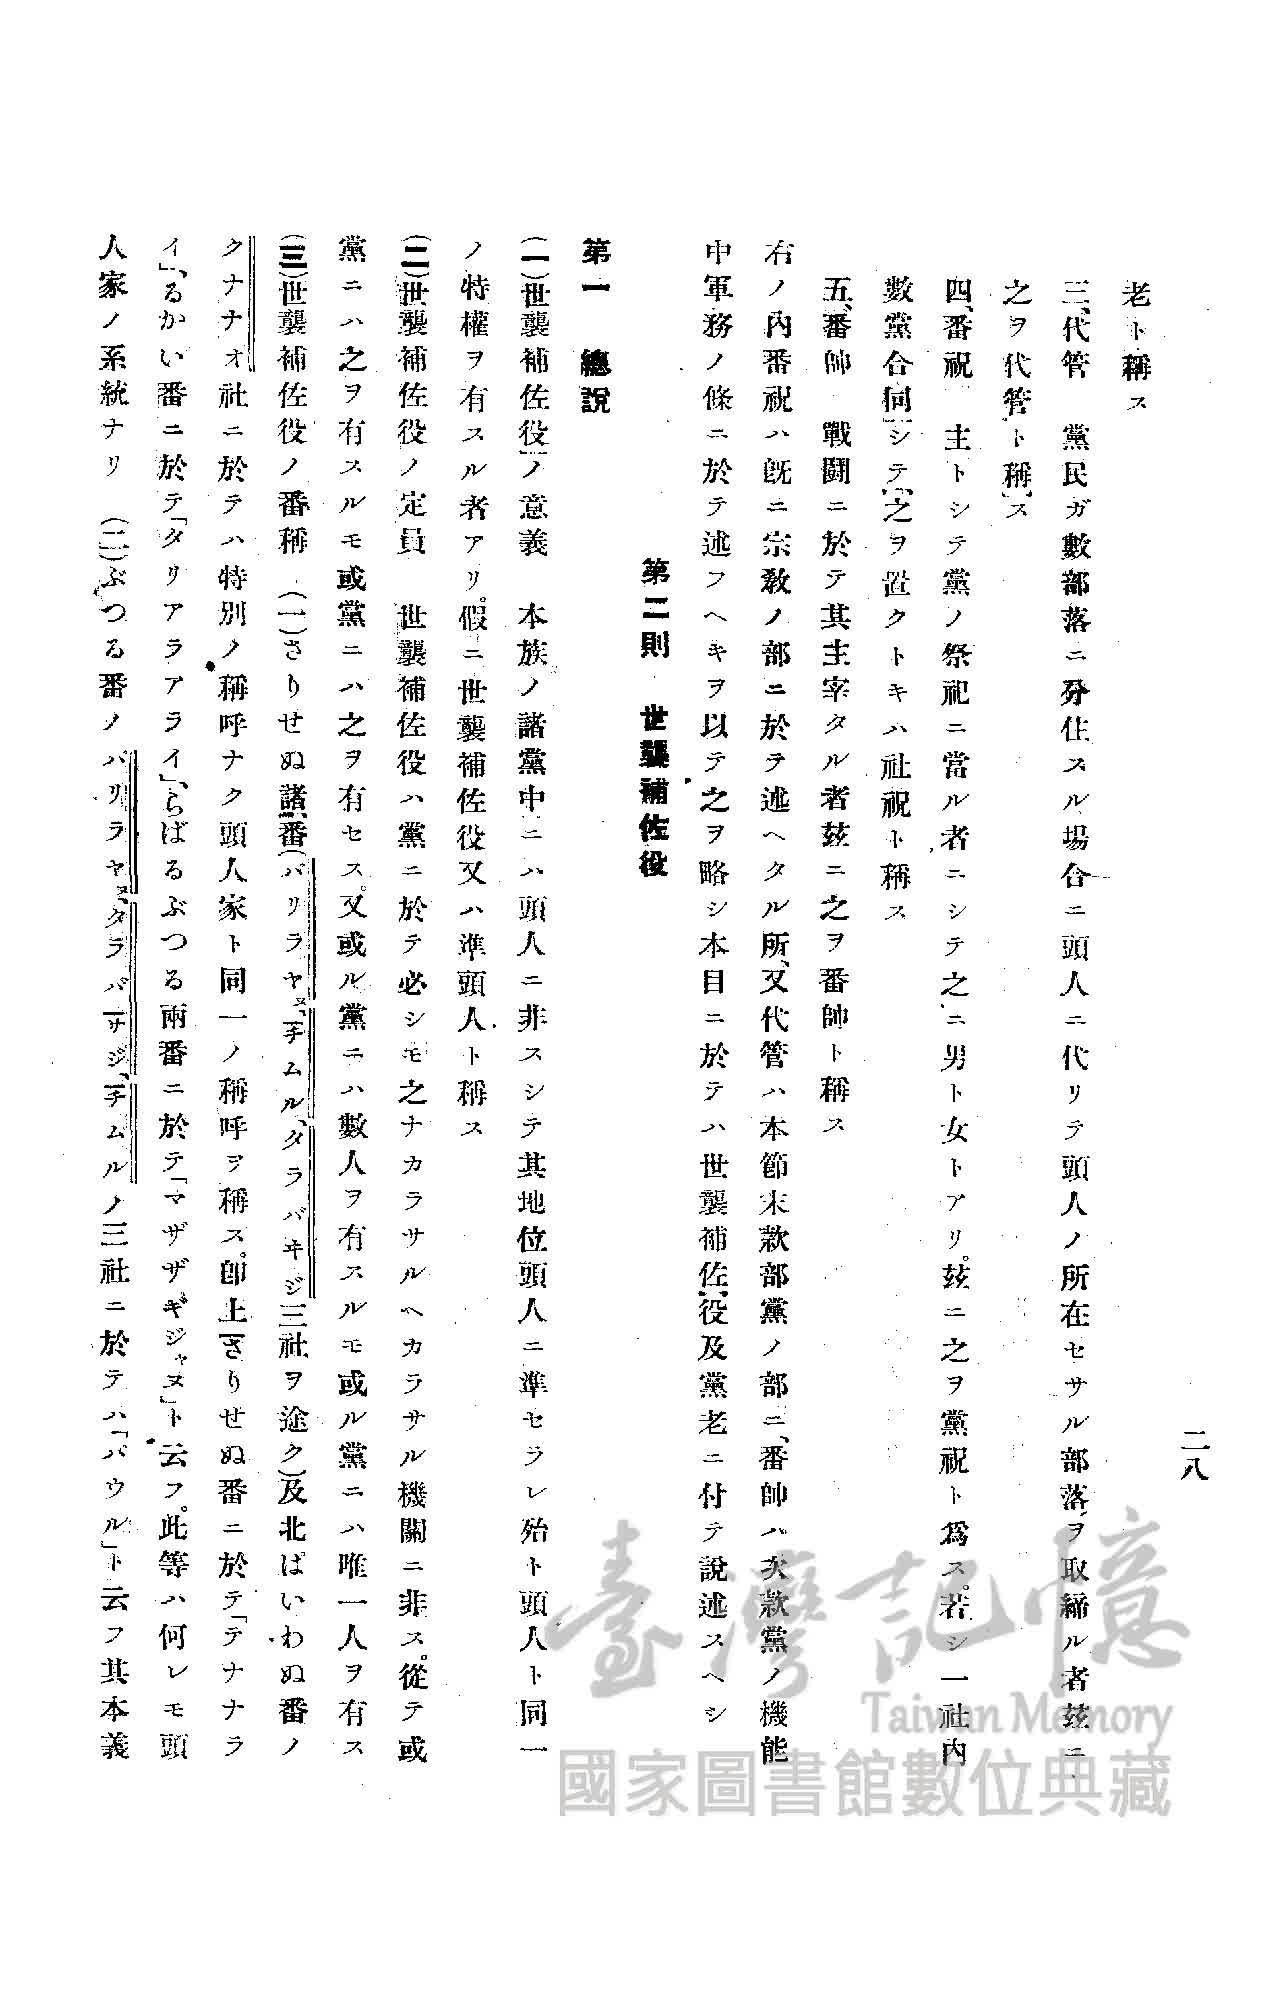 二八
老ト稱ス
三、代管　黨民ガ數部落ニ分住スル場合ニ頭人ニ代リテ頭人ノ所在セサル部落ヲ取締ル者茲ニ
之ヲ代管ト稱ス
四、番祝　主トシテ黨ノ祭祀ニ當ル者ニシテ之ニ男ト女トアリ。茲ニ之ヲ黨祝ト爲ス。若シ一社內
數黨合同シテ之ヲ置クトキハ社祝ト稱ス
五、番帥　戰鬪ニ於テ其主宰タル者茲ニ之ヲ番帥ト稱ス
右ノ內番祝ハ旣ニ宗敎ノ部ニ於テ述ヘタル所、又代管ハ本節末款部黨ノ部ニ、番帥ハ次款黨ノ機能
中軍務ノ條ニ於テ述フヘキヲ以テ之ヲ略シ本目ニ於テハ世襲補佐役及黨老ニ付テ說述スヘシ
第二則　世襲補佐役
第一　總說
(一)世襲補佐役ノ意義　本族ノ諸黨中ニハ頭人ニ非スシテ其地位頭人ニ準セラレ殆ト頭人ト同一
ノ特權ヲ有スル者アリ。假ニ世襲補佐役又ハ準頭人ト稱ス
(二)世襲補佐役ノ定員　世襲補佐役ハ黨ニ於テ必シモ之ナカラサルヘカラサル機關ニ非ス。從テ或
黨ニハ之ヲ有スルモ或黨ニハ之ヲ有セス。又或ル黨ニハ數人ヲ有スルモ或ル黨ニハ唯一人ヲ有ス
(三)世襲補佐役ノ番稱　(一)さりせぬ諸番(パリラヤヌ、チムル、タラバキジ三社ヲ途ク)及北ぱいわぬ番ノ
クナナオ社ニ於テハ特別ノ稱呼ナク頭人家ト同一ノ稱呼ヲ稱ス。卽上さりせぬ番ニ於テ「テナナラ
イ」、るかい番ニ於テ「タリアラアライ」、らばるぶつる兩番ニ於テ「マザザギジャヌ」ト云フ。此等ハ何レモ頭
人家ノ系統ナリ　(二)ぶつる番ノパリラヤヌ、タラバサジ、チムルノ三社ニ於テハ「パウル」ト云フ其本義
臺灣記憶
Taiwan Memory
國家圖書館數位典藏